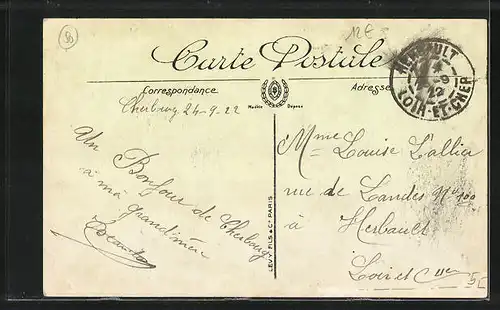 12€
Carte Postale
Correspondance
Adresse
Modèle Déposé
HERBAULT
LOIR-ET-CHER
Cherbourg 24-9-22
Un Bonjour de Cherbourg
à ma grandmère
Mme Louise Lallier
rue de Landes No 100
à Herbault
Loir et Cher
LEVY FILS & Cie PARIS